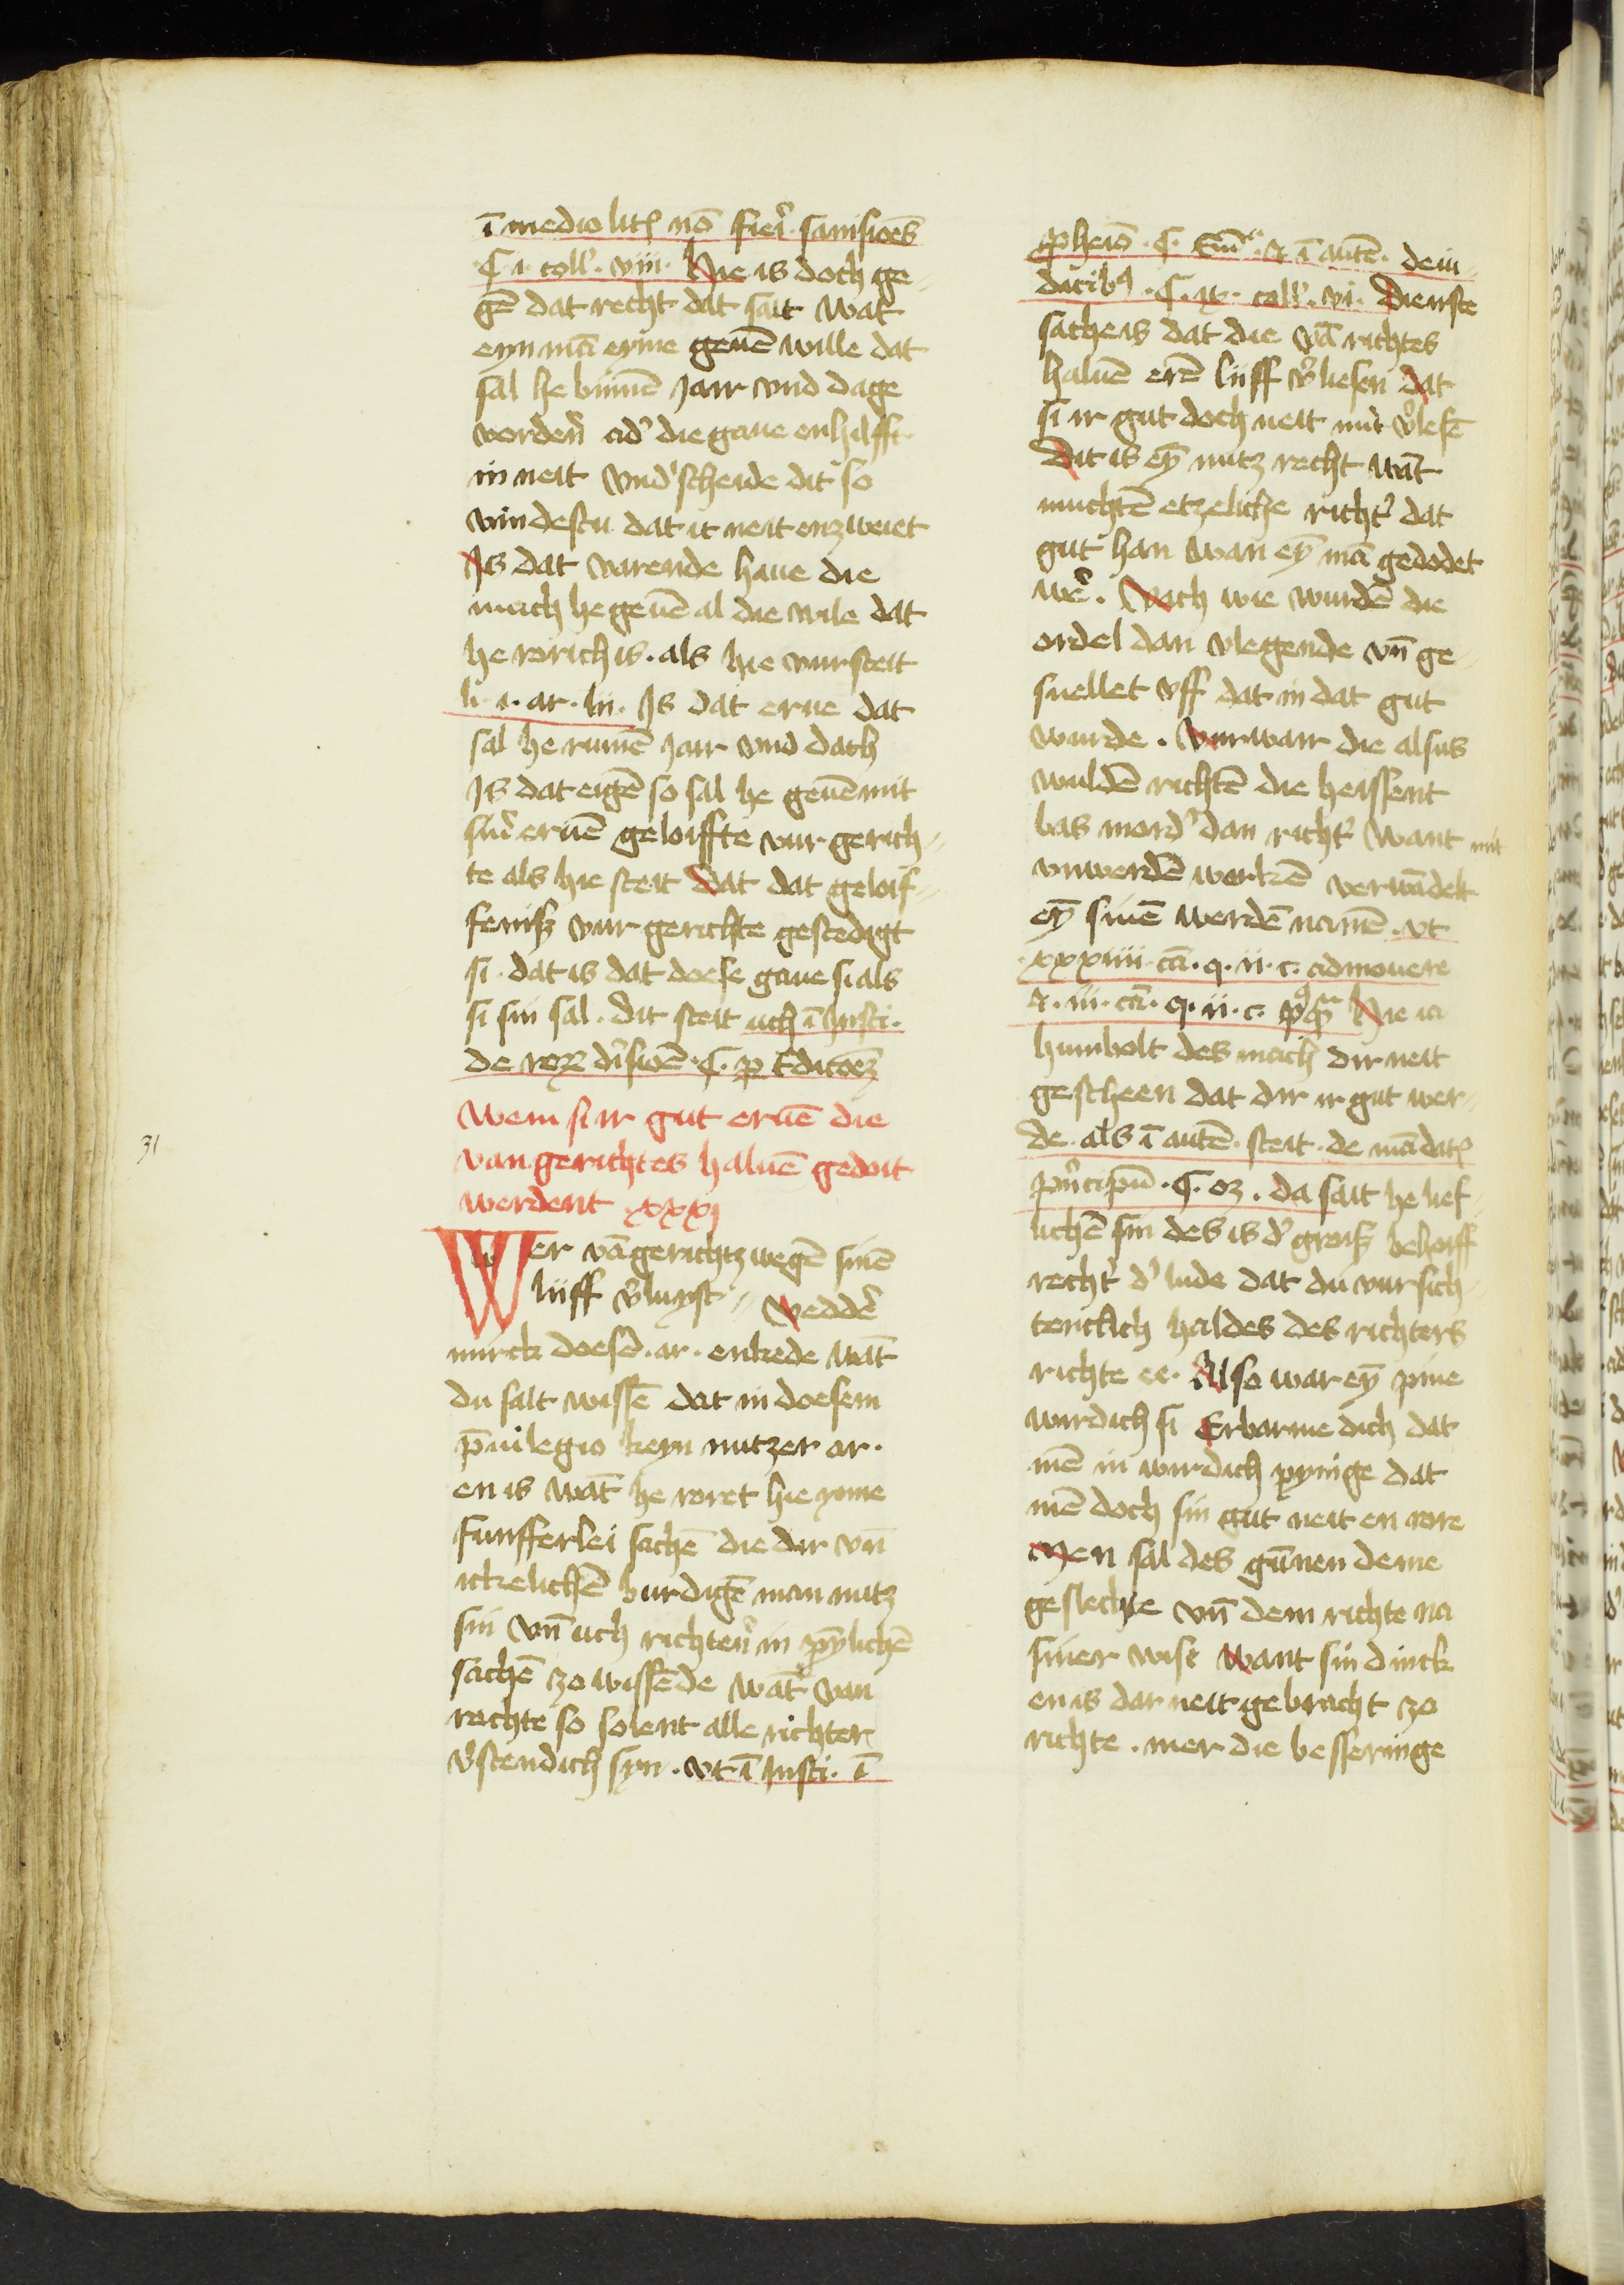 ī medio lit̄ nō fieri sansioēs
¶ i. coll. viii. Hie is doch ge-
gē dat recht dat sait wat
eyn mā eyme geuē wille dat
sal he binnē jair vnd dage
vorderē adˀ die gaue enhilfft
in neit vndˀscheide dit so
vindestu dat it neit enzweiet
Is dat varende haue die
mach he geuē al die wile dat
he rorich is. als hie vursteit
li. i. ar. lii. Is dat erue dat
sal he rumē jair vnd dach
Is dat eigē so sal he geuē mit
sinˀ eruē geloiffte vur gerich-
te als hie steit dat dat geloif-
fenisz vur gerichte gestedigt
si. dat is dat doese gaue si als
si sin sal. dit steit uch ī Insti.
de diˀsioē ¶
Wem si ir gut eruē die
van gerichtes haluē gedoit
werdent xxxj
31
Wer vā gerichtz wegē sinē
liiff vˀluyst Wedderˀ
mirck doesē. ar. enkede wāt
du salt wissē dat in doesem
pˀuilegio keyn nutzer ar.
en is wāt he roret hie yme
funfferlei sachē die dir vn̄
ickelichē burdigē man nutz
sin vn̄ uch richterˀ in pȳlichē
sachē zo wissēde wāt van
rechte so solent alle richter
vˀstendich syn. vt ī Insti. ī
¶ & ī autē. de iu-
dicibꝫ. ¶ ix. coll. vi. Dierste
sache is dat die vā richtes
haluē erē liiff vˀliesen dat
si ir gut doch neit mit vˀlesē
Dit is eȳ nutz recht wāt
muchtē etzeliche richtˀ dat
gut han wan eȳ mā gedodet
werˀ. Och wie wurdē die
ordel dan vlegende vn̄ ge-
snellet vff dat in dat gut
wurde. Vurwair die alsus
wuldē richtē die heissent
bas mordˀ dan richtˀ want mit
vnwerdē werkē verwādelt
eȳ sinē werdē namē. vt
xxxiiii. cā. q. ii. c. admouere
& iii. cā. q. ii. c. Hie ia
humbolt des mach dir neit
gescheen dat dir ir gut wer-
de. als ī autē. steit. de mādat̄
pˀncipū. ¶ oꝫ. da sait he lief
lichē sin des is dˀ groisz behoiff
rechtˀ dˀ lude dat du vursich-
tenclich haldes des richters
richte ee. Also war eȳ pine
wirdich si Erbarme dich dat
mē in wirdich pynige dat
mē doch sin gut neit en rore
Men sal des gūnen deme
geslechte vn̄ dem richte na
siner wise want sin dinck
en is dar neit gebracht zo
richte. mer die besseringe